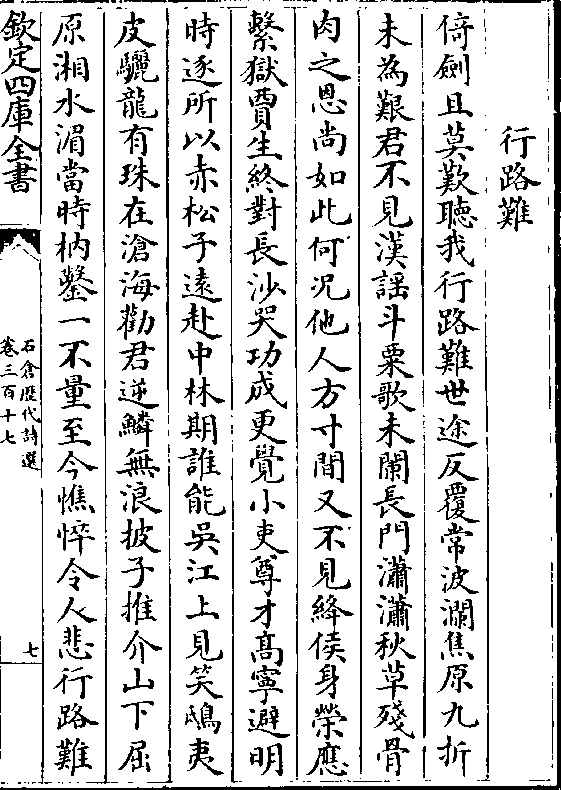 行路難
倚劍且莫歎聽我行路難世途反覆常波瀾焦原九折
未為艱君不見漢謡斗粟歌未闌長門瀟瀟秋草殘骨
肉之恩尚如此何况他人方寸間又不見絳侯身榮應
繫獄賈生終對長沙哭功成更覺小吏尊才髙寧避明
時逐所以赤松子逺赴中林期誰能吳江上見笑鴟夷
皮驪龍有珠在滄海勸君逆鱗無浪披子推介山下屈
原湘水湄當時枘鑿一不量至今憔悴令人悲行路難
欽定四庫全書
石倉歴代詩選
卷三百十七
七